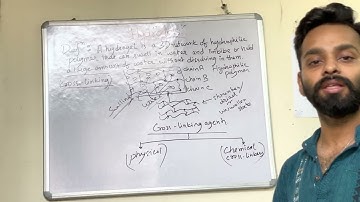 Def : A hydrogel is a 3D network of hydrophilic
polymers that can swell in water and imbibe or hold
a large amount of water without dissolving in them.
cross-linking:
chain A
chain B
chain C
hydrophilic
polymer
Swelling
water
Cross-linking agent
(physical)
(Chemical
cross-linkers)